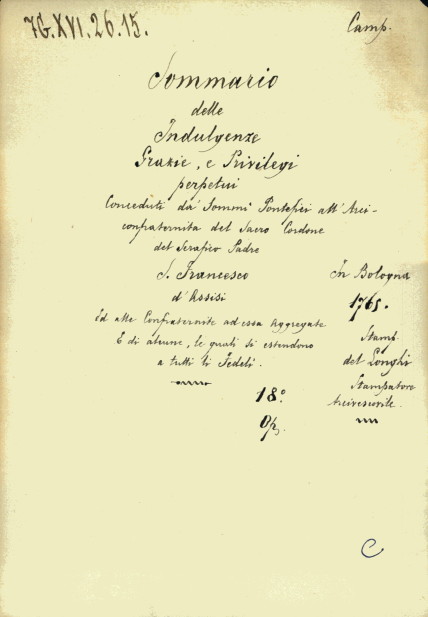 7G.XVI.26.15.
Camp.
Sommario
delle
Indulgenze
Grazie, e Privilegi
perpetui
Conceduti da' Sommi Pontefici all' Arci-
confraternita del Sacro Cordone
del Serafico Padre
S. Francesco
d'Assisi
Ed alle Confraternite ad essa Aggregate
E di alcune, le quali si estendono
a tutti li Fedeli.
In Bologna
1765.
Stamp.
del Longhi
Stampatore
Arcivescovile.
18.°
Op.
C